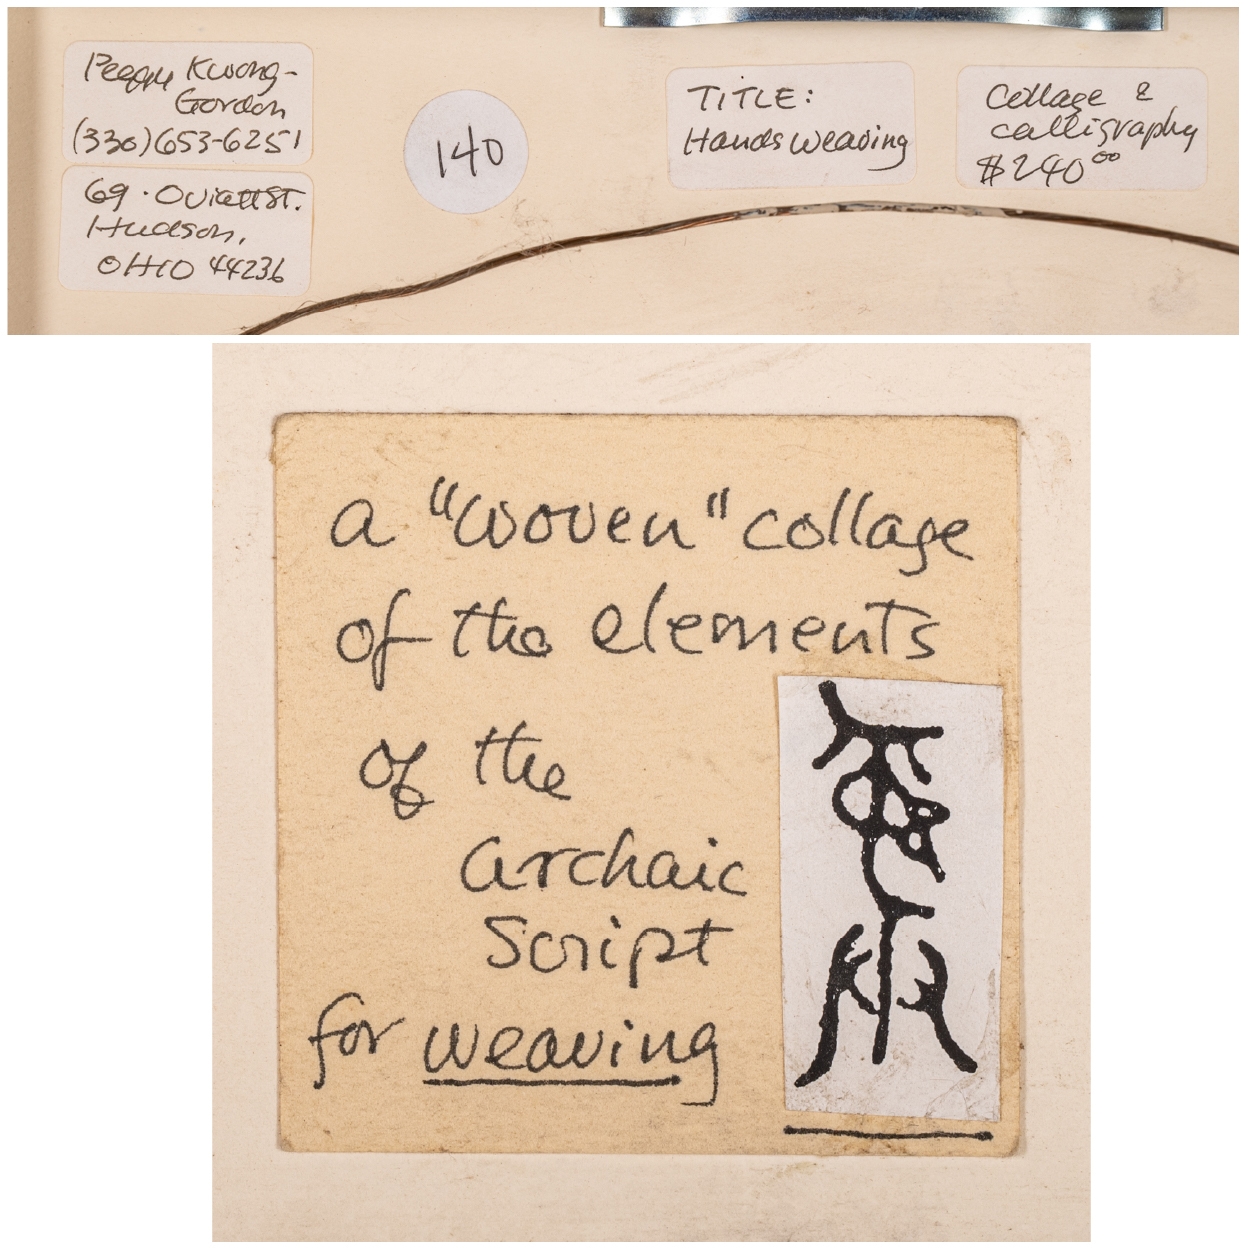 Peggy Kwong-
Gordon
(330)653-6251
69 · Oviatt St.
Hudson,
OHIO 44236
140
TITLE:
Hands Weaving
Collage &
calligraphy
$240⁰⁰
a "woven" collage
of the elements
of the
archaic
Script
for weaving